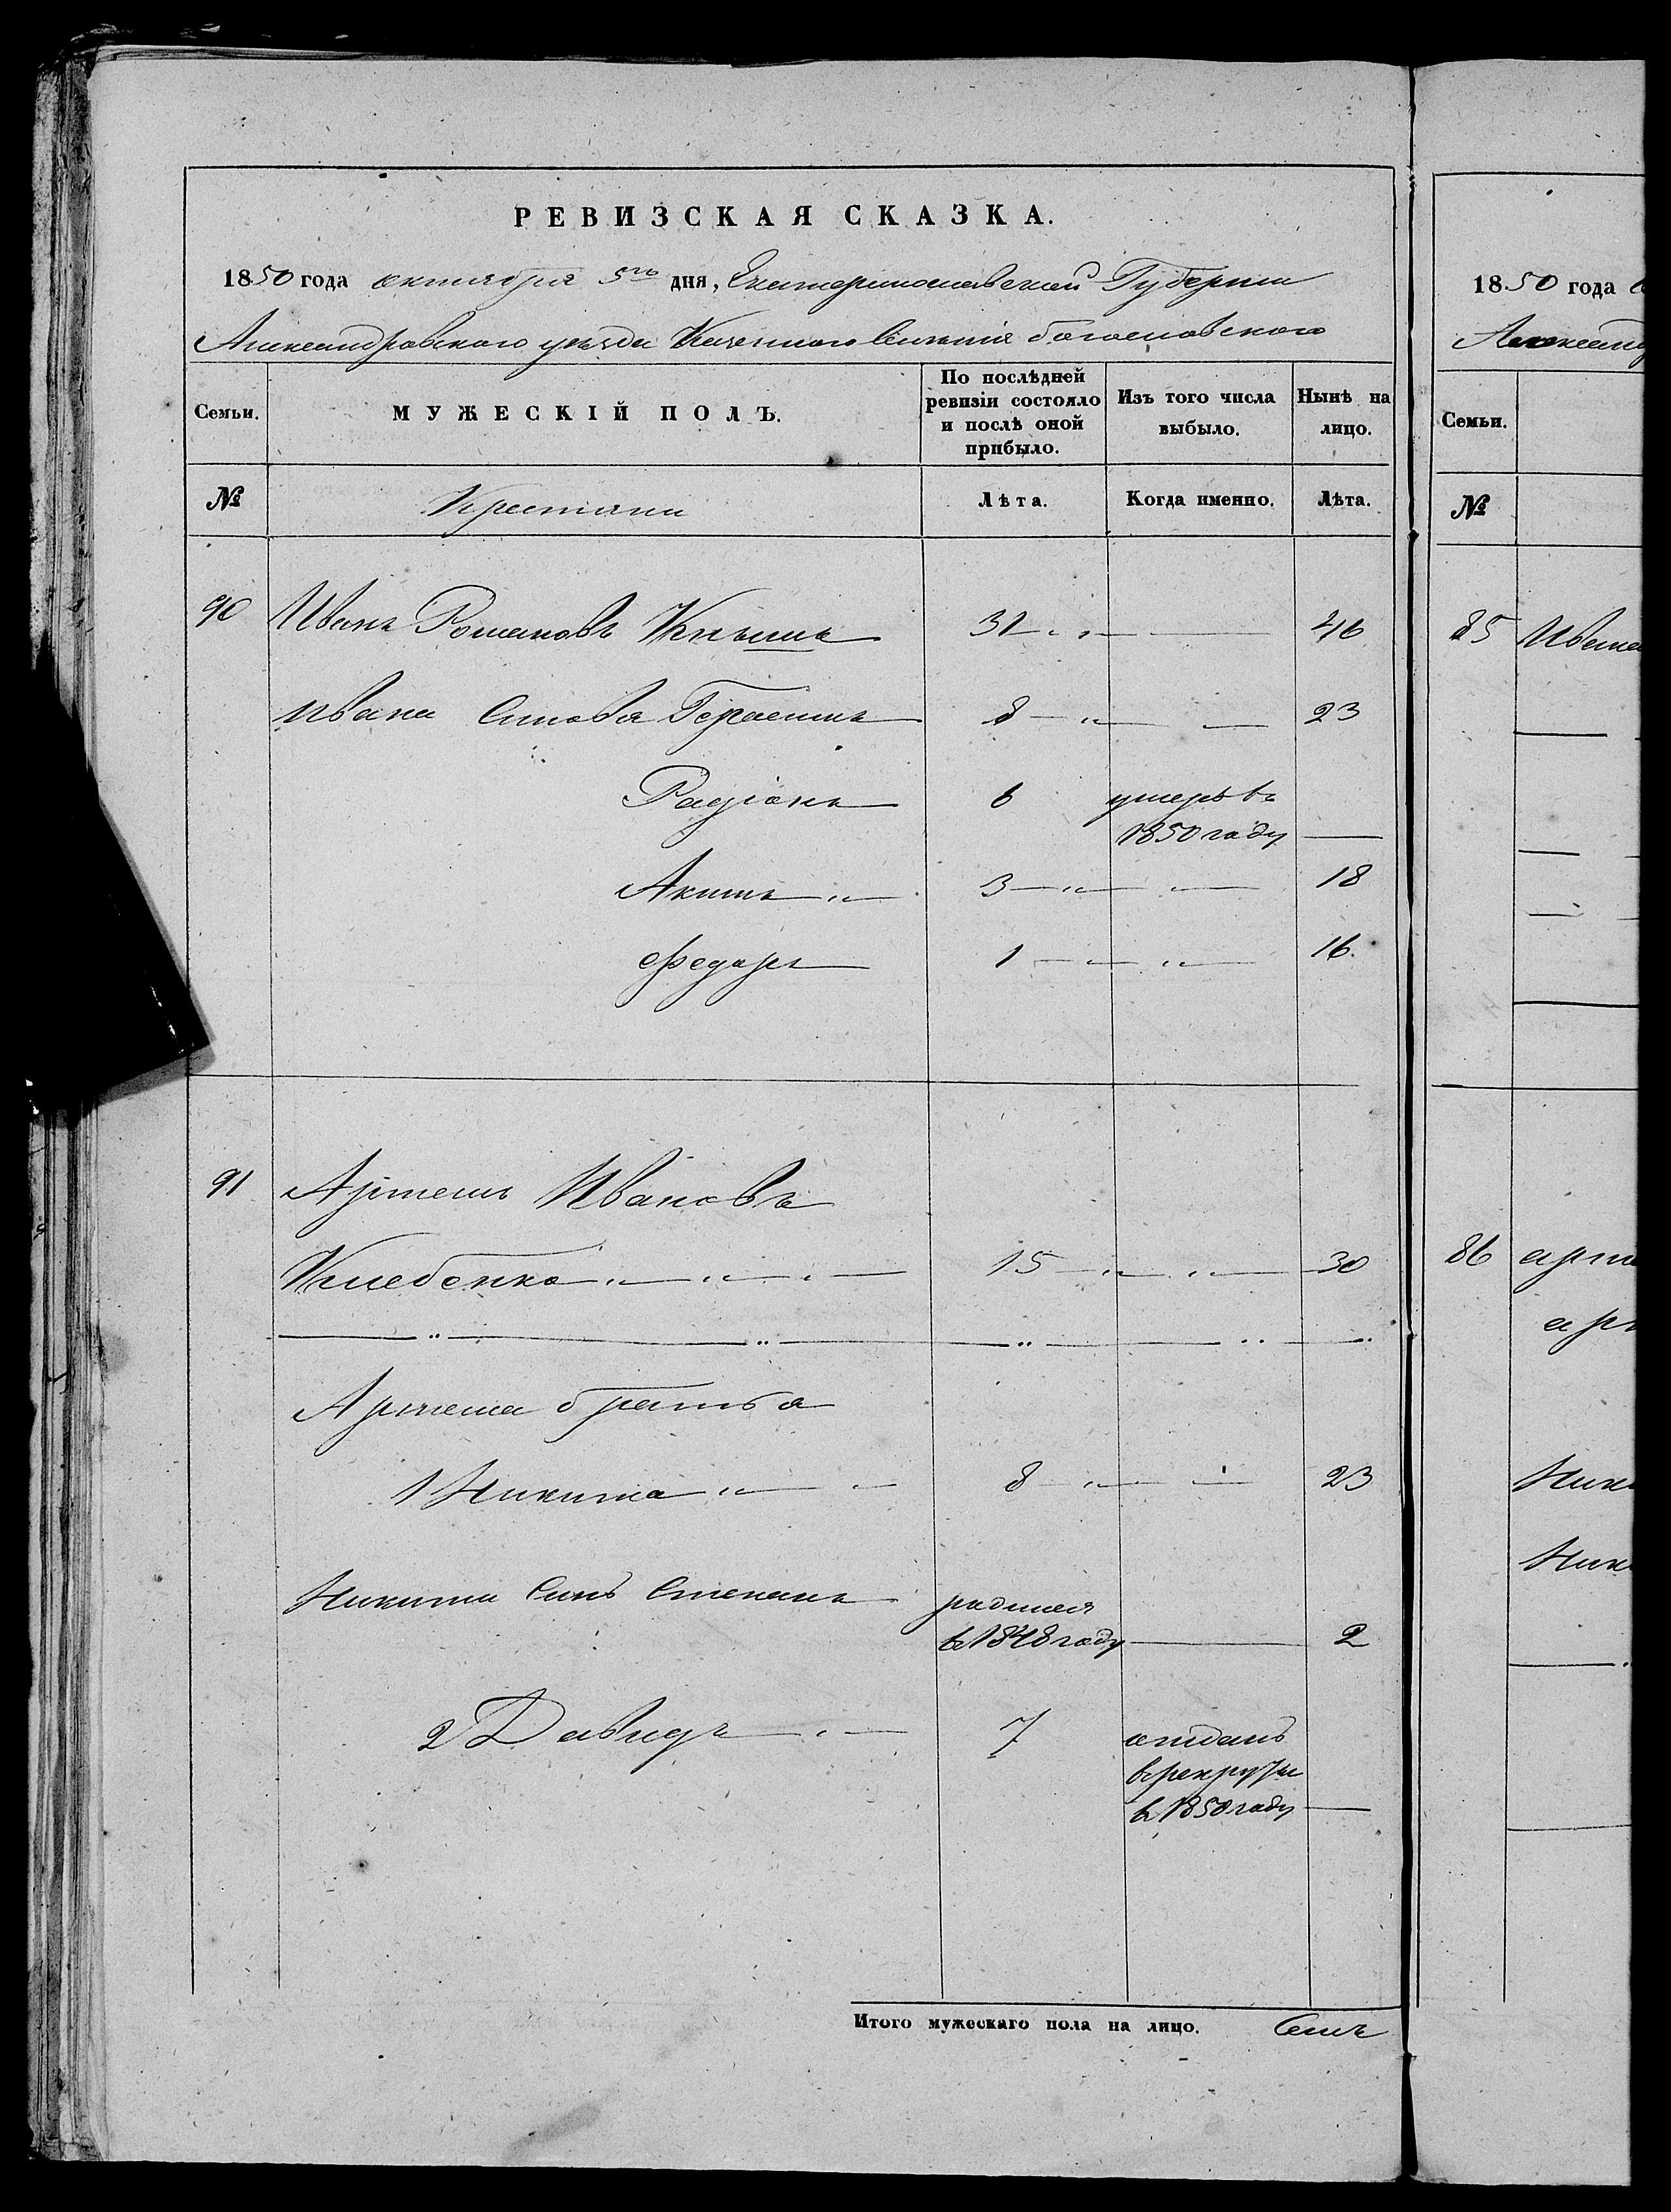 РЕВИЗСКАЯ СКАЗКА.
1850 года октября 5го дня, Екатеринославской Губернии
Александровского уезда Казенного Селения богословского
Семьи. МУЖЕСКІЙ ПОЛЪ. По послѣдней ревизіи состояло и послѣ оной прибыло. Изъ того числа выбыло. Нынѣ на лицо.
№ Крестяни Лѣта. Когда именно. Лѣта.
90 Иванъ Романовъ 31 46
Ивана Синовя Герасимъ 8 23
Радіонъ 6 умеръ въ
1850 году
Акимъ 3 18
Федоръ 1 16
91 Артемъ Ивановъ
15 30
Артема братья
1 Никита 8 23
Никиты Синъ Степанъ родился
въ 1848 году 2
2 Давидъ 7 отданъ
в рекруты
в 1850 году
Итого мужескаго пола на лицо. Семь
1850 года
Александ
Семьи.
№
85 Ивана
86 арте
арт
Ники
Ники